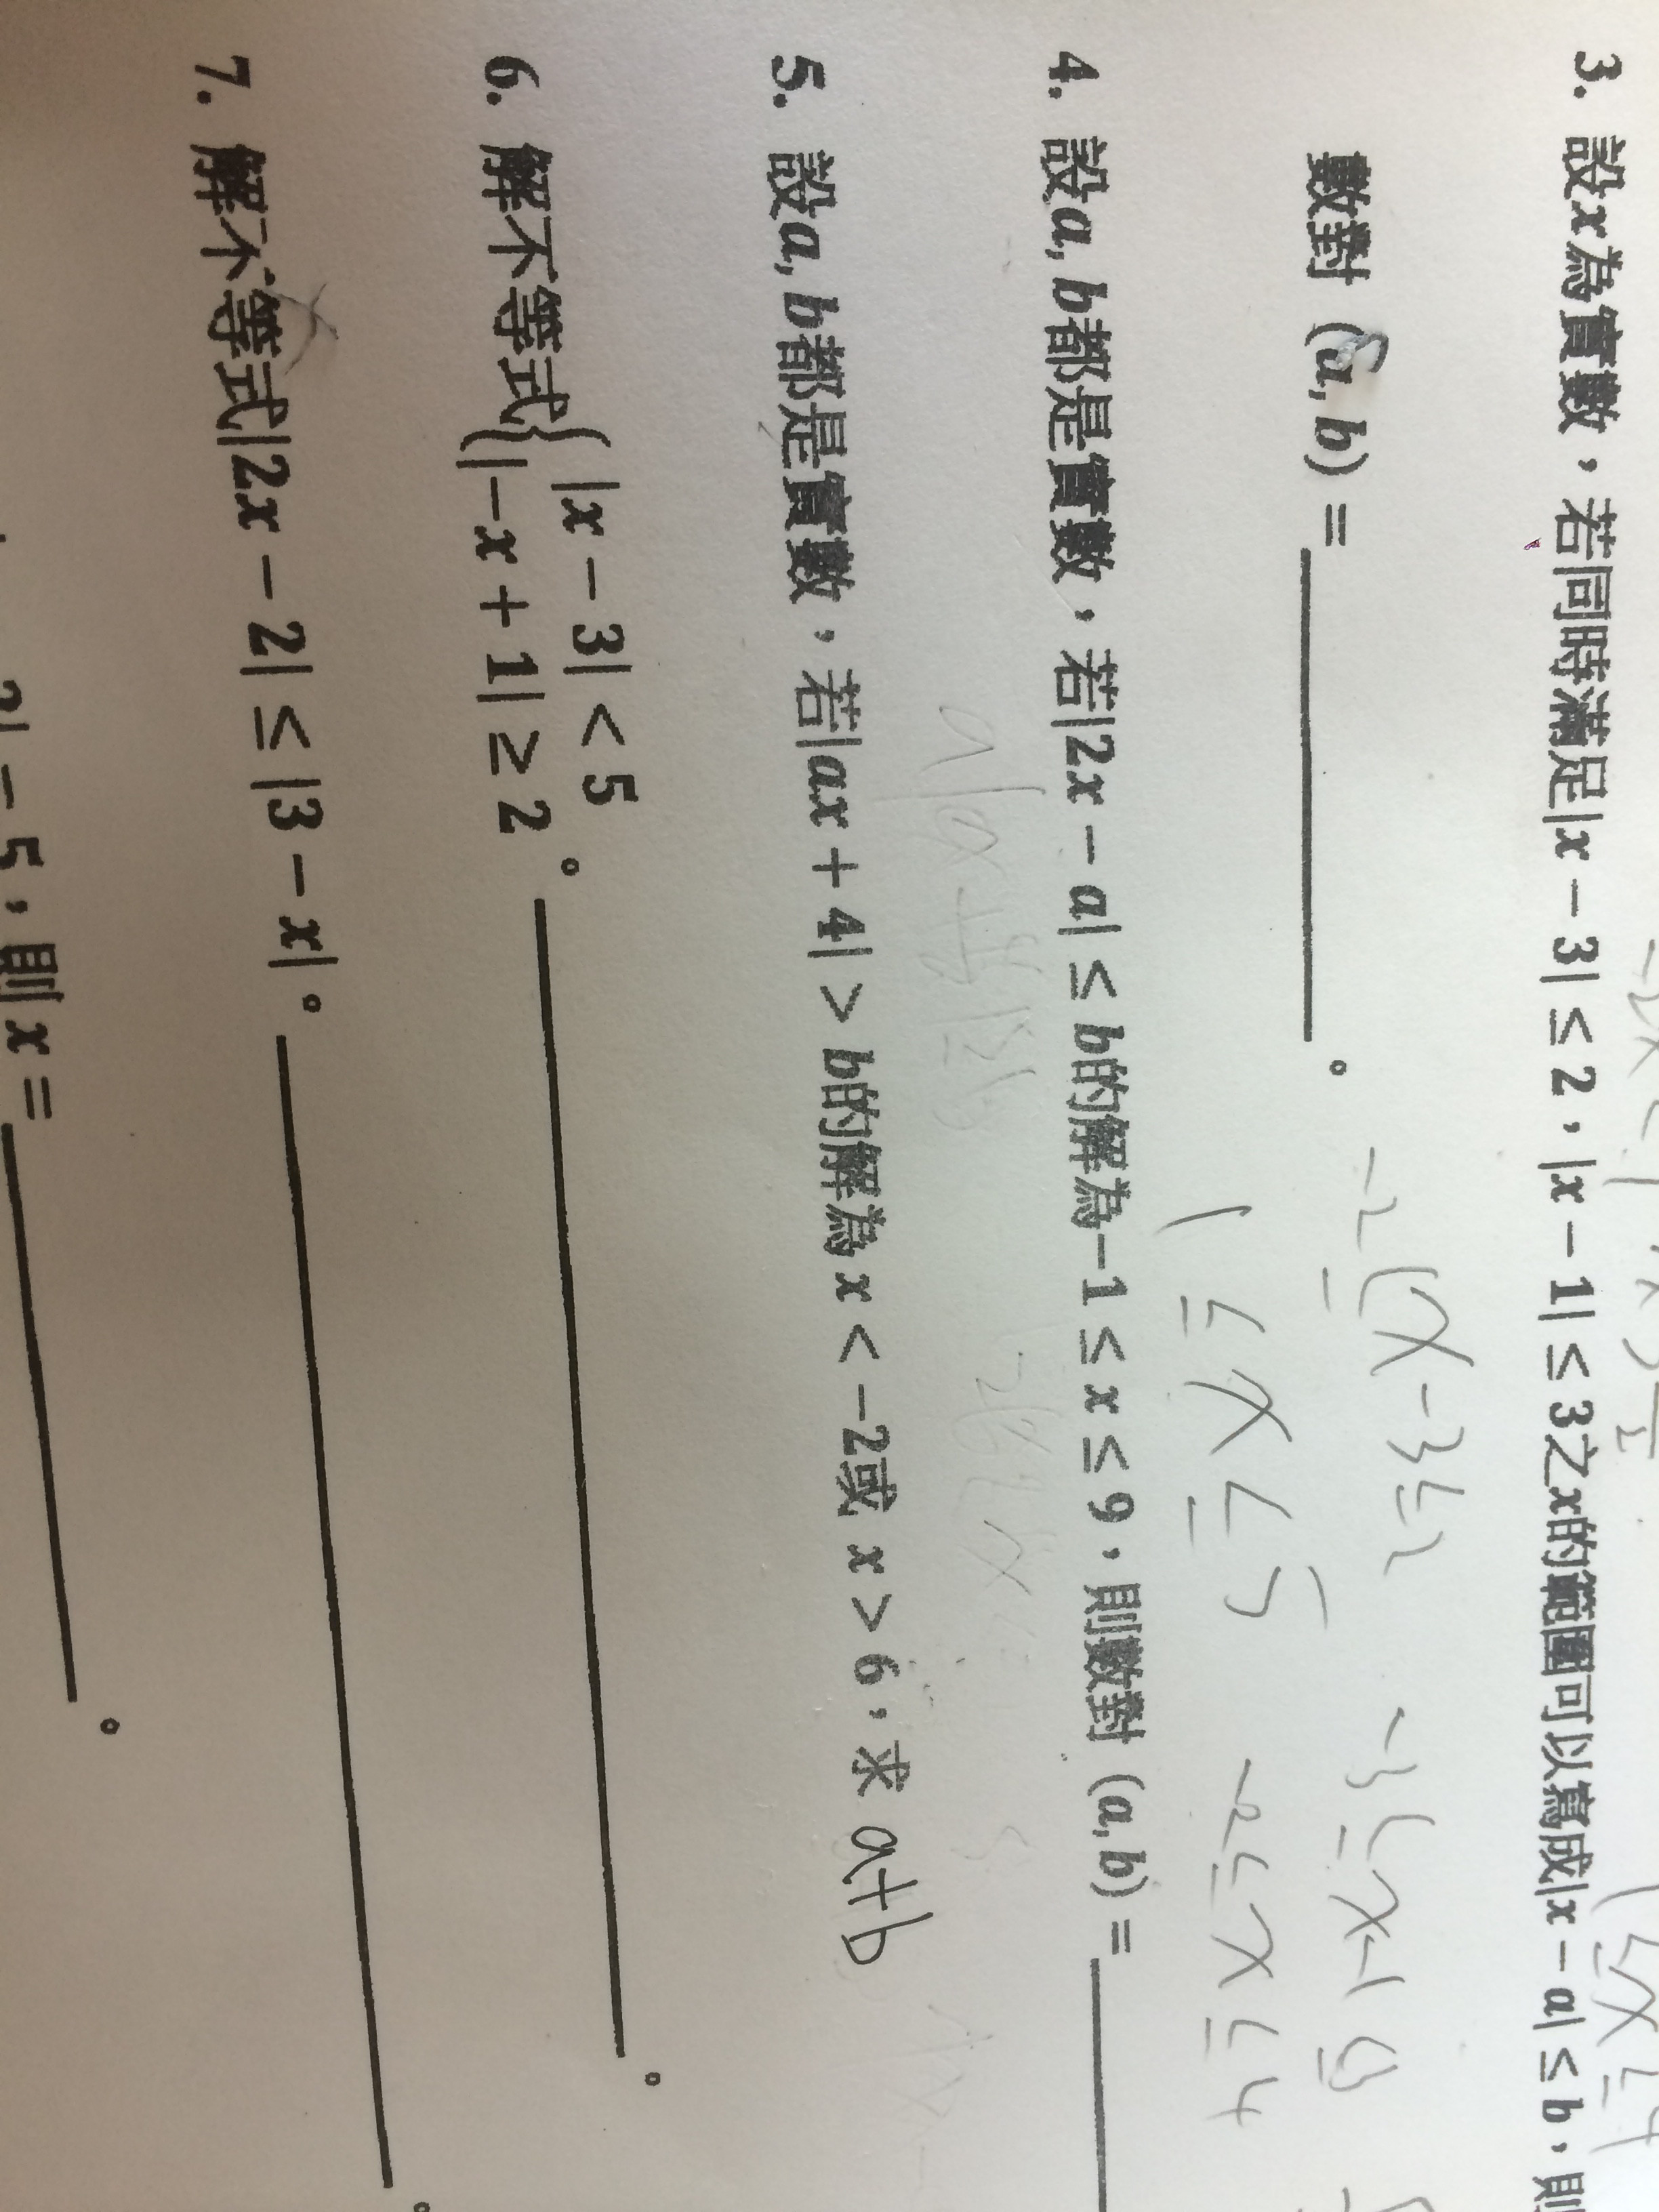 3. 設x為實數，若同時滿足|x − 3| ≤ 2，|x − 1| ≤ 3之x的範圍可以寫成|x − a| ≤ b，則
數對 (a, b) = ________。
-2≤x-3≤2 -3≤x-1≤3
1≤x≤5 -2≤x≤4
4. 設a, b都是實數，若|2x − a| ≤ b的解為−1 ≤ x ≤ 9，則數對 (a, b) = ________
5. 設a, b都是實數，若|ax + 4| > b的解為 x < −2或 x > 6，求 a+b
6. 解不等式{|x − 3| < 5
|−x + 1| ≥ 2。________。
7. 解不等式|2x − 2| ≤ |3 − x|。________。
2| − 5，則 x = ________。